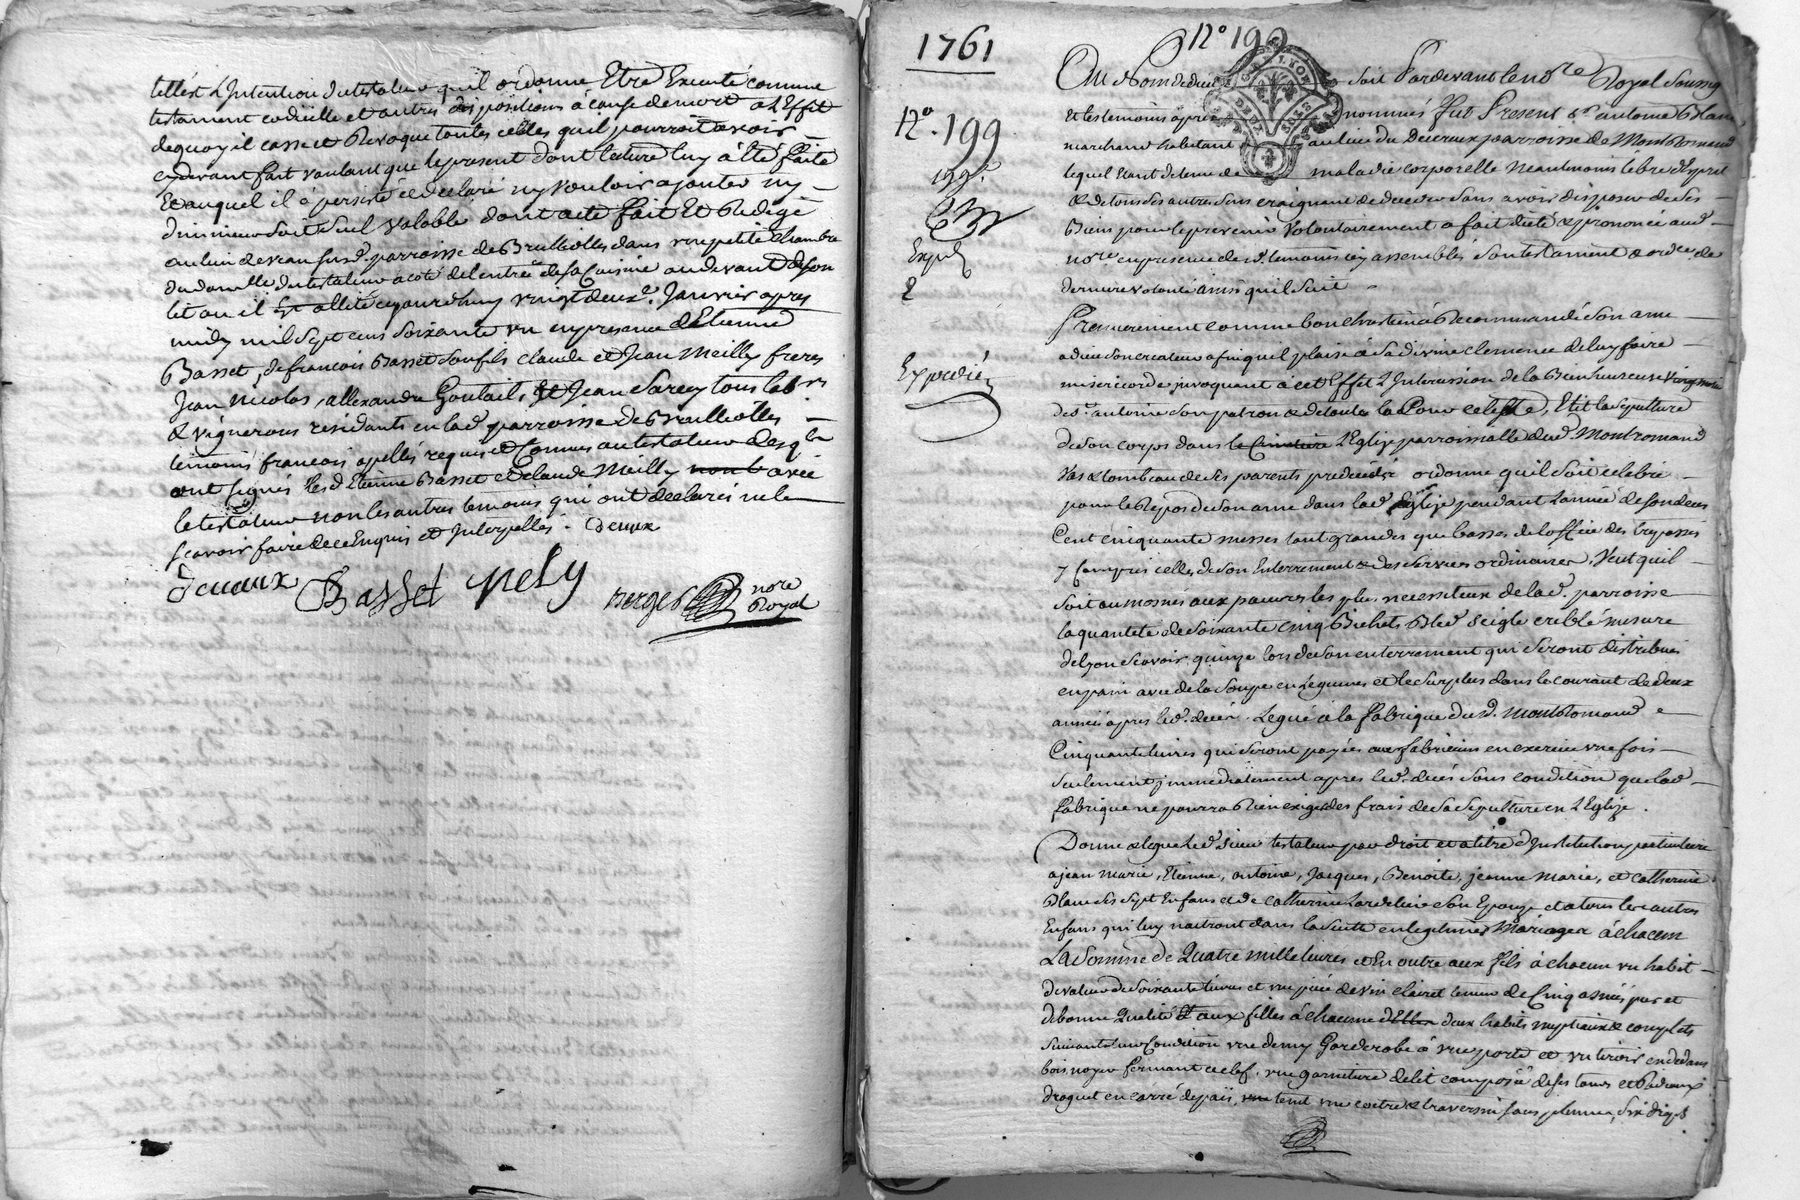 tell est L'Intention du testateur qu'il ordonne Etre Executé comme
testament codicille et autres dispositions à cause de mort a L'Effet
dequoy il casse et Revoque toutes celles qu'il pourroit avoir
cydevant fait voulant que le present dont lecture luy à Eté faite
Et auquel il à persisté et declaré ny vouloir ajouter ny
diminuer soit seul valable dont acte fait Et Redigé
au lieu de susd. parroisse de Brullioles dans une petite chambre
du domicille du testateur a coté de l'entrée de sa Cuisine au devant de son
lit ou il Est allité cejourdhuy vingt deuxe. Janvier apres
midy mil sept cens soixante un en presence d'Etienne
Basset, de francois Basset son fils claude et Jean Meilly freres
Jean Nicolas, allexandre Goutail, Et Jean Sarcey tous labrs
& vignerons résidants en lad parroisse de Brullioles
temoins francois apellés requis et Connus au testateur desqls
ont signés lesd Etienne Basset et claude Meilly non le avec
le testateur non les autres temoins qui ont declarés ne le
scavoir faire de ce Enquis et Interpellés. Devaux
Devaux Basset Mely
notre
Royal
1761
No. 199
No 199
199.
Expedié
2
Expedié
Au Nom de dieu soit Pardevant le notre Royal soussig
et les temoins apres nommés fut Present sr. antoine Blanc
marchand habitant au lieu du parroisse de Montromand
lequel Etant detenu de maladie corporelle neantmoins libre d'Esprit
& de tous ses autres sens craignant de deceder sans avoir disposer de ses
Biens pour le prevenir volontairement a fait dicté & prononcé aud
notre en presence desd. temoins icy assemblés son testament & ordce de
derniere volonté ainsi qu'il suit
Premierement comme bon chrestien à Recommandé son ame
a dieu son createur afin qu'il plaise à sa divine clemence de luy faire
misericorde jnvoquant à cet Effet L'Intercession de la Bienheureuse vierge marie
de st. antoine son patron & de toute la Cour celeste, Elit la sepulture
de son corps dans le Cimetiere l'Eglise parroissialle dud. Montromand
vas & tombeau de ses parents predecedés ordonne qu'il soit celebré
pour le Repos de son ame dans lad. Eglise pendant l'année de son deces
Cent cinquante messes tant grandes que basses de l'office des trepassés
y compris celles de son Enterrement & des services ordinaires. Veut qu'il
soit aumosnés aux pauvres les plus necessiteux de lad. parroisse
la quantité de soixante cinq Bichets Bled seigle criblé mesure
de lyon scavoir quinze lors de son enterrement qui seront distribués
en pain avec de la soupe en legumes et le surplus dans le courant de deux
années apres led. deces. Legue à la fabrique dud. Montromand
Cinquante livres qui seront payées aux fabriciens en exercice une fois
seulement jmmediatement apres led. deces sous condition que lad
fabrique ne pourra Rien exiger des frais de sa sepulture en l'Eglize.
Donne & legue led. sieur testateur par droit et a titre d'Institution particuliere
a jean marie, Etienne, antoine, Jacques, Benoite, jeanne marie, et catherine
Blanc ses sept Enfans et de catherine son Epouze et a tous les autres
Enfans qui luy naitront dans la suitte en legitimes Mariages à chacun
La Somme de Quatre mille livres et En outre aux fils à chacun un habit
de valeur de soixante livres et une piece de vin clairet tenue de Cinq asnées pur et
de bonne Qualité Et aux filles à chacune d'Elles deux habits nuptiaux & complets
suivant leur Condition une demy Garderobe à une porte et un tiroir en dedans
bois noyer fermant à clef. une garniture de lit composée de ses tours et Rideaux
droguet en carré de païs, une tente une coetre & traversin sans plumes, six draps